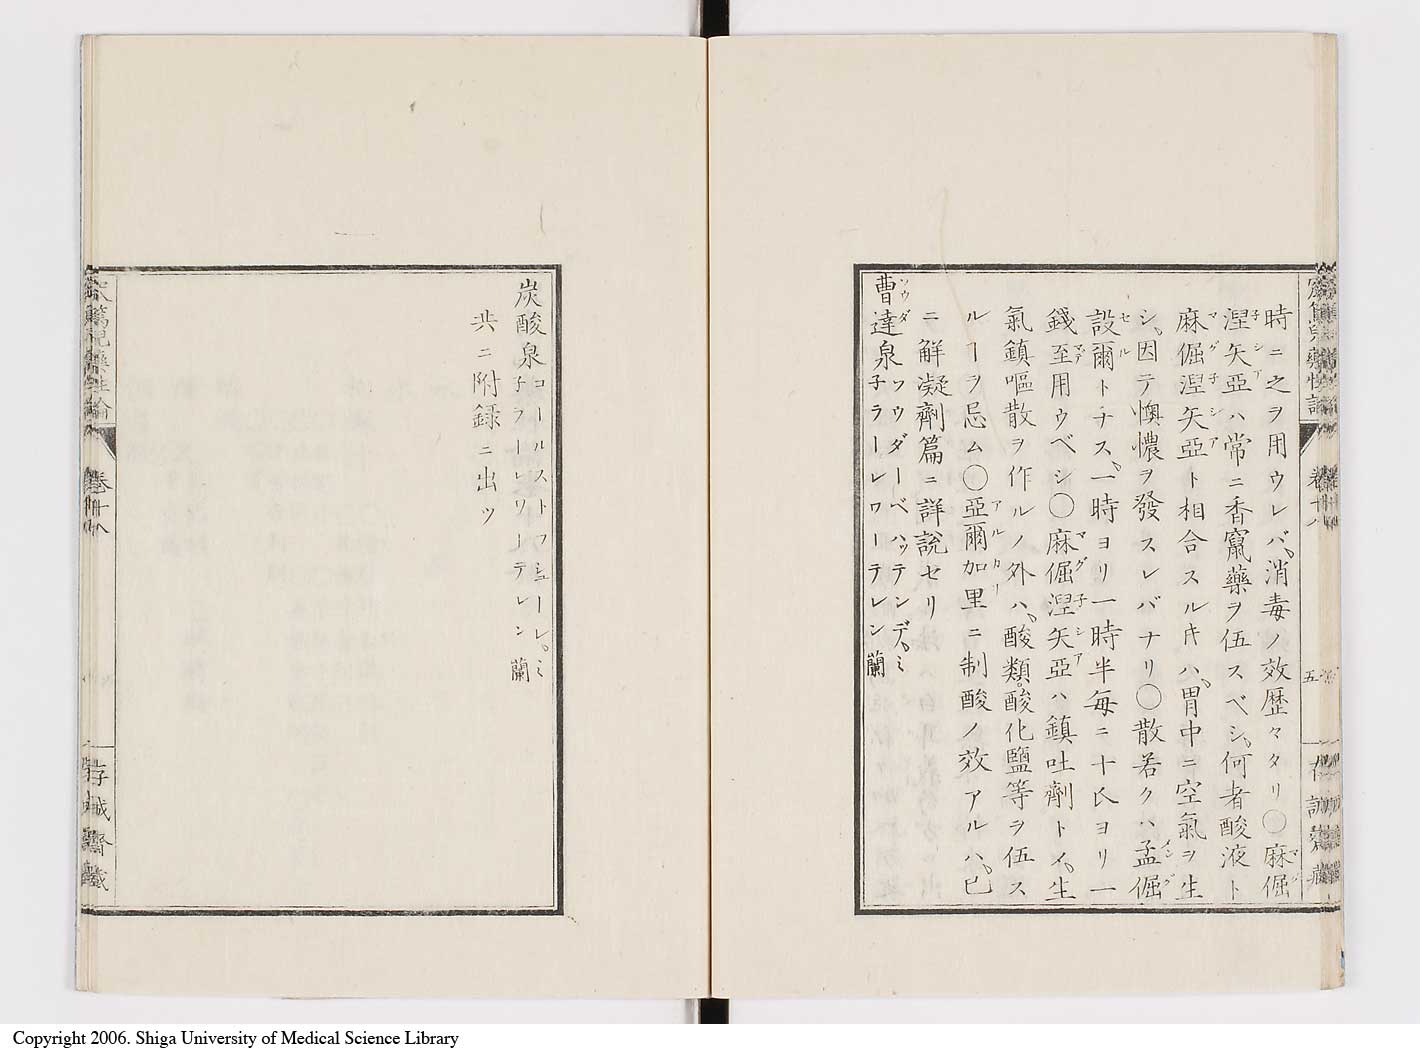 時ニ之ヲ用ウレバ、消毒ノ效歴々タリ〇麻倔
涅矢亞ハ常ニ香竄藥ヲ伍スベシ、何者酸液ト
麻倔涅矢亞ト相合スルキハ、胃中ニ空氣ヲ生
シ、因テ懊憹ヲ發スレバナリ〇散若クハ孟倔
設爾トナス、一時ヨリ一時半毎ニ十氏ヨリ一
錢至用ウベシ〇麻倔涅矢亞ハ鎮吐劑トイ、生
氣鎮嘔散ヲ作ルノ外ハ、酸類酸化鹽等ヲ伍ス
ルーヲ忌ム〇亞爾加里ニ制酸ノ效アルハ、已
ニ解凝劑篇ニ詳説セリ
曹達泉 ソウダ フウダーベハッテンデ、ミ子ラーレワーテレン 蘭
五
炭酸泉 コールストフシューレ、ミ子ラーレワーテレン 蘭
共ニ附録ニ出ツ
篤兒藥性論 卷十八
存誠齋藏
Copyright 2006. Shiga University of Medical Science Library